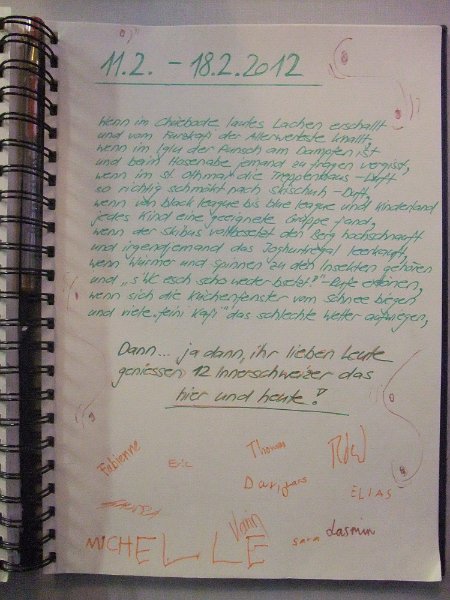 11.2. - 18.2.2012
Wenn im Chäebode lautes Lachen erschallt
und vom Furskafi der Allerwerteste knallt,
wenn im Iglu der Punsch am Dampfen ist
und beim Hosenabe jemand zu fragen vergisst,
wenn im St. Othmar die Treppenhaus-Luft
so richtig schmökt nach Skischuh-Duft,
wenn von black league bis blue league und Kinderland
jedes Kind eine geeignete Gruppe fand,
wenn der Skibus vollbesetzt den Berg hochschnauft
und irgendjemand das Joghurtregal leerkauft,
wenn Würmer und Spinnen zu den Insekten gehören
und "s'WC esch scho weder bsetzt"-Rufe ertönen,
wenn sich die Küchenfenster vom Schnee biegen
und viele "feini Kafi" das schlechte Wetter aufwiegen,
Dann... ja dann, ihr lieben Leute
geniessen 12 Innerschweizer das
hier und heute!
Fabienne Eric Thomas
ELIAS
MICHELLE Sara Jasmin